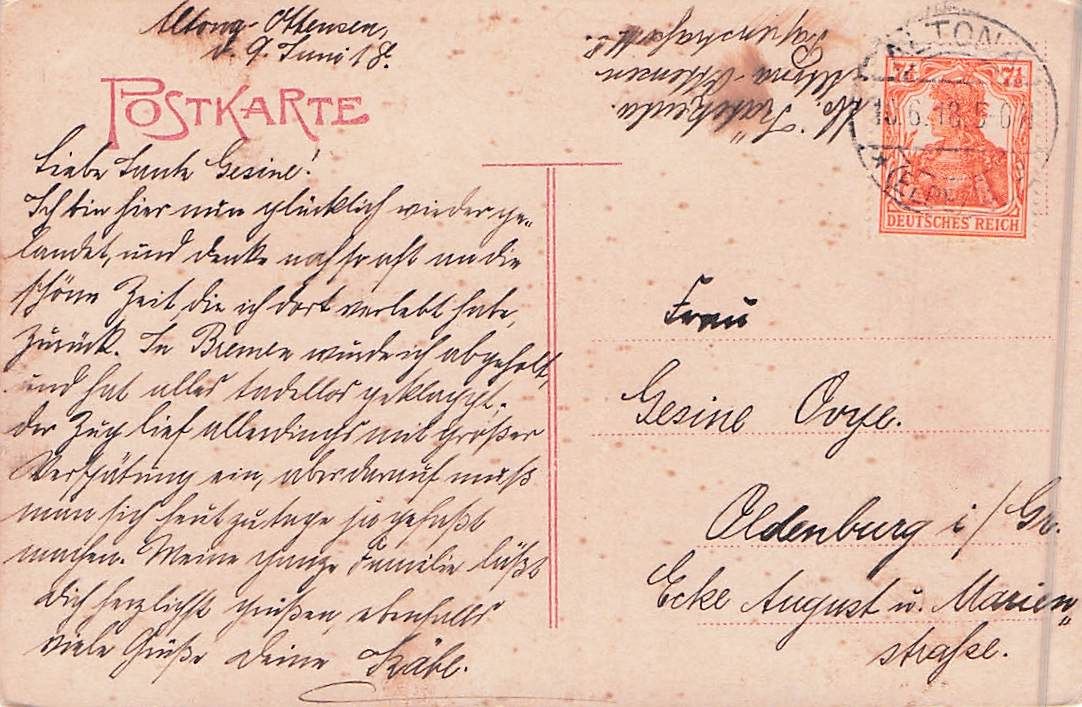 Altona-Ottensen,
d. 9. Juni 18.
POSTKARTE
Liebe Tante Gesine!
Ich bin hier nun glücklich wieder ge-
landet, und denke noch so oft an die
schöne Zeit, die ich dort verlebt habe,
zurück. In Bremen wurde ich abgeholt,
und hat alles tadellos geklappt.
Der Zug lief allerdings mit großer
Verspätung ein, aber darauf muß
man sich heutzutage ja gefaßt
machen. Meine ganze Familie läßt
Dich herzlichst grüßen, ebenfalls
viele Grüße Deine Käthe.
Altona-Ottensen
ALTONA
10.6.18.5-6N
7½ 7½
DEUTSCHES REICH
Frau
Gesine
Oldenburg i/Gr.
Ecke August u. Marien-
straße.